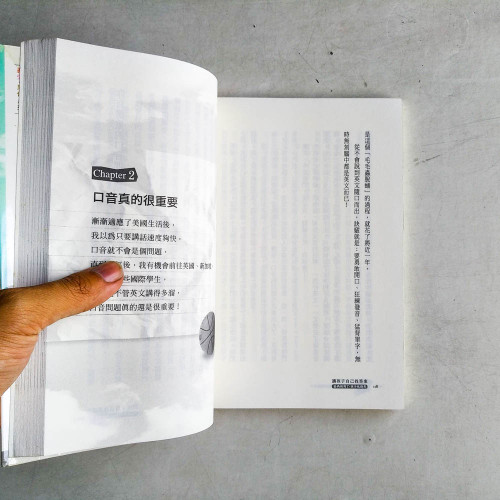 Chapter 2
口音真的很重要
漸漸適應了美國生活後，
我以為只要講話速度夠快。
口音就不會是個問題，
後，我有機會前往英國、新加坡
些國際學生，
不管英文講得多溜，
口音問題真的還是很重要！
是這個「毛毛蟲脫蛹」的過程，就花了將近一年，
從不會說到英文隨口而出，訣竅就是：要勇敢開口、狂練發音、猛背單字，無
時無刻腦中都是英文而已！
讓孩子自己找答案